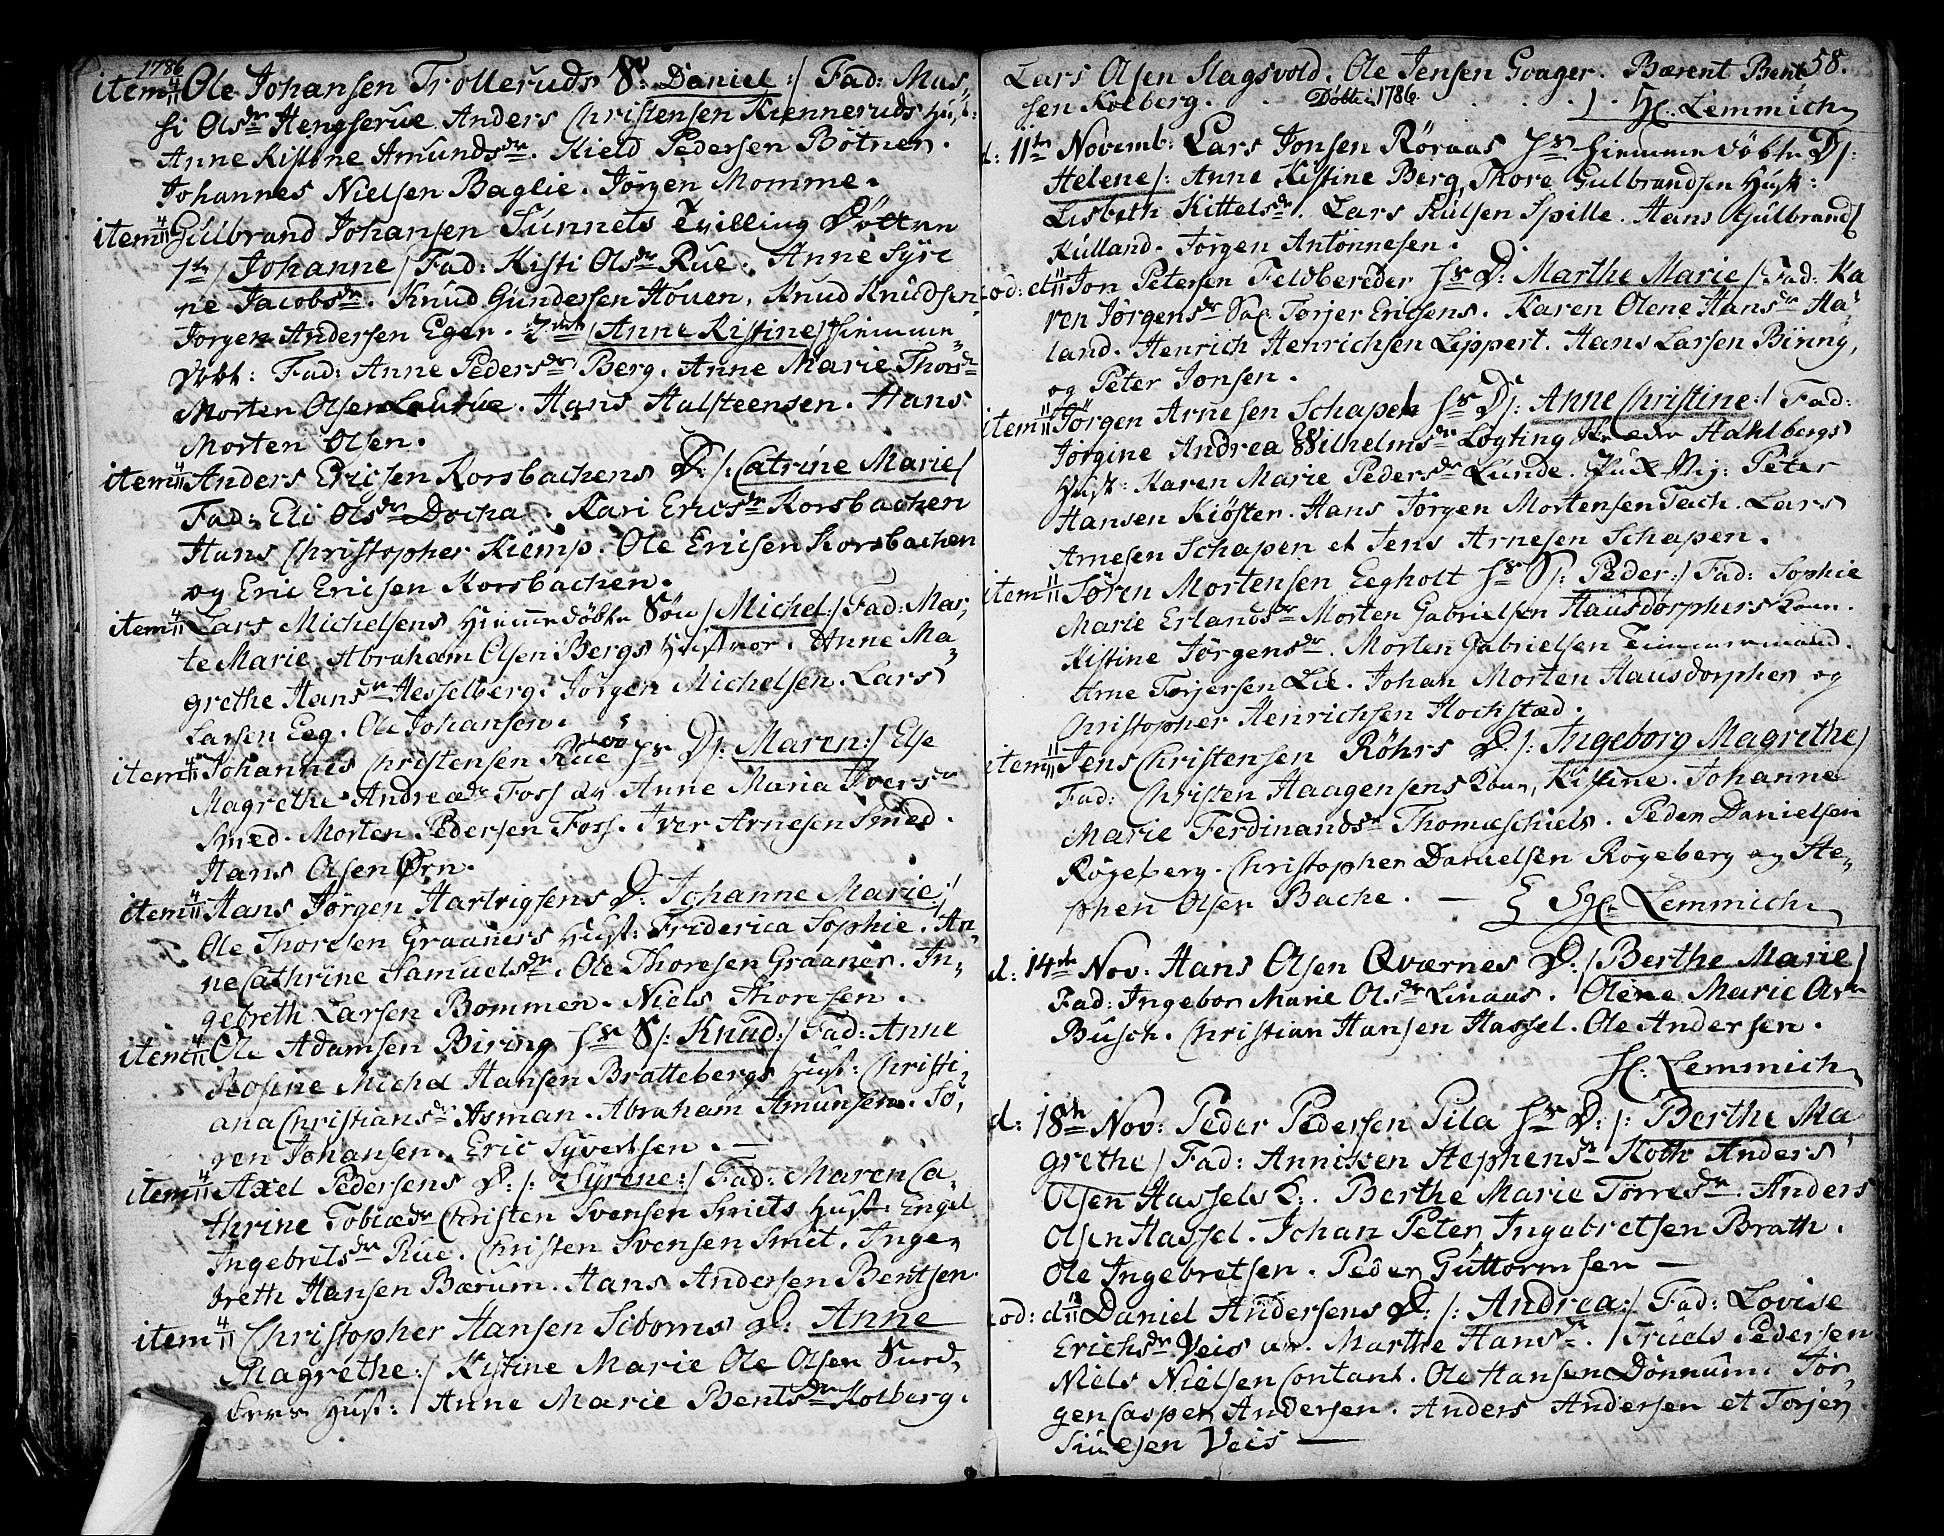 1786
item 4/11 Ole Johansen Trolleruds S: Daniel :/ Fad: Mas,
si Olsdr Hengserue. Anders Christensen Kienneruds Hust:
Anne Kistine Amundsdr. Kield Pedersen Bötner.
Johannes Nielsen Baglie. Jørgen Momme.
item 4/11 Gulbrand Johansen Sunnets Tvilling Döttre
1ste /Johanne/ Fad: Kisti Olsdr Rue. Anne Syre
ne Jacobsdr. Knud Gundersen Houen, Knud Knudsen
Jorgen Andersen Eger. 2den /Anne Kistine/ Hiemme
Döbt: Fad: Anne Pedersdr Berg. Anne Marie Thorsdr
Morten Olsen Laurue. Hans Halsteensen. Hans
Morten Olsen.
item 4/11 Anders Ericsen Korsbachens D: /: Catrine Marie/
Fad: Eli Olsdr Docka. Kari Ericsdr Korsbachen
Hans Christopher Kiemp. Ole Ericsen Korsbachen
og Eric Ericsen Korsbachen.
item 4/11 Lars Michelsens Hiemmedöbte Sön /Michel:/ Fad: Mar,
te Marie, Abraham Olsen Bergs Hustroe. Anne Ma
grethe Hansdr Hesselberg. Jørgen Michelsen. Lars
Larsen Eeg. Ole Johansen.
item 4/11 Johannes Christensen Rue hs D/: Maren:/ Else
Magrethe Andreædr Foss og Anne Maria Iversdr
Smed. Morten Pedersen Foss. Iver Arnesen Smed.
Hans Olsen Ørn.
item 4/11 Hans Jørgen Hartvigsens D: Johanne Marie:/
Ole Thoresen Graaners Hust: Friderica Sophie. An,
ne Cathrine Samuelsdr. Ole Thoresen Graaner. In,
gebreth Larsen Bommen. Niels Thoresen.
item 4/11 Ole Adamsen Biring hs S/: Knud:/ Fad: Anne
Rosine Michel Hansen Brattebergs Hust: Christi,
ana Christiansdr Asman. Abraham Amunsen. Sö,
ren Johansen. Eric Syvertsen.
item 4/11 Axel Pedersens D: /: Syrene:/ Fad: Maren Ca,
thrine Tobiædr Christen Svensen Smits Hust: Engel
Ingebretsdr Rue. Christen Svensen Smit. Inge,
breth Hansen Bærum. Hans Andersen Bentsen
item 4/11 Christopher Hansen Seboms D: Anne
Magrethe:/ Kistine Marie Ole Olsen Sund,
Hust: Anne Marie Bentsdr Kolberg.
58.
Lars Olsen Slagsvold. Ole Jensen Gvager. Bærent Bent
sen Kolberg.
Döbte 1786.
Sc. Lemmich
d: 11te Novemb: Lars Jonsen Röraas hs Hiemme döbte D/:
Helene/: Anne Kistine Berg, Thore Gulbrandsen Hust:
Lisbeth Kittelsdr. Lars Kulsen Spille. Hans Gulbrands
Kulland. Jørgen Antönnesen.
eod: d 11 Jon Petersen Feldbereder hs D: Marthe Marie/ Fad: Ka
ren Jørgensdr Torjer Ericsens. Karen Olene Hansdr Ha,
land. Henrich Henrichsen Lippert. Hans Larsen Binny,
og Peter Jonsen.
item 11/11 Jørgen Arnesen Schapen hs D/: Anne Christine:/ Fad:
Jørgine Andrea Wilhelmsdr Logting Hahlbergs
Hust: Karen Marie Pedersdr Lunde. Peter
Hansen Kiöster. Hans Jørgen Mortensen Teich. Lars
Arnesen Schapen et Jens Arnesen Schapen.
item 11/11 Søren Mortensen Eegholt hs S/: Peder:/ Fad: Sophie
Marie Erlandsdr Morten Gabrielsen Hausdorphers Kone.
Kistine Jørgensdr. Morten Gabrielsen Temmermand.
Arne Torjersen Lie. Johan Morten Hausdorpher og
Christopher Henrichsen Hochstæd.
item 11/11 Jens Christensen Röhrs D:/: Ingeborg Magrethe/
Fad: Christen Haagensens Kone, Kistine. Johanne
Marie Ferdinandsdr Thomæschiels. Peder Danielsen
Røgeberg. Christopher Danielsen Røgeberg og Ste,
phen Olsen Bache.
Sc. Lemmich
d: 14de Nov: Hans Olsen Qværnes D: /Berthe Marie/
Fad: Ingebor Marie Olsdr Linaas. Olene Marie
Busch. Christian Hansen Hassel. Ole Andersen.
Sc. Lemmich
d: 18de Nov: Peder Pedersen Pila hs D: /: Berthe Ma
grethe/ Fad: Annicken Stephensdr Koth Anders
Olsen Hassels K:. Berthe Marie Torresdr. Anders
Olsen Hassel. Johan Peter Ingebretsen Brath.
Ole Ingebretsen. Peder Guttormsen
eod: d 18/11 Daniel Andersens D: /: Andrea:/ Fad: Lovise
Erichsdr Veis Marthe Hansdr. Truels Pedersen
Niels Nielsen Contant. Ole Hansen Dönnum. Jør,
gen Casper Andersen. Anders Andersen et Torjer
Simesen Veis